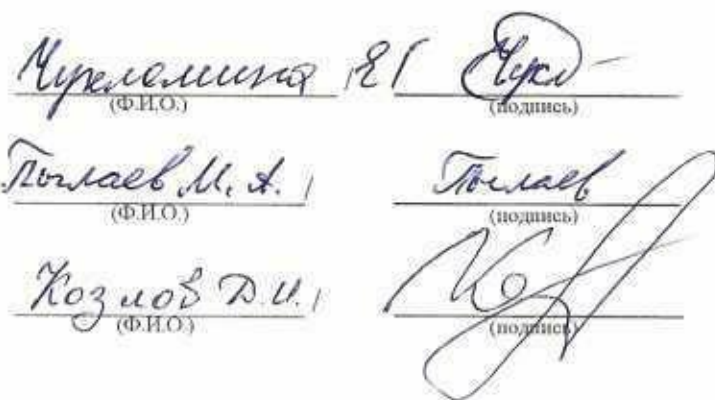 Чукломина ЕГ Чукл
(Ф.И.О.) (подпись)
Пылаев М. А. Пылаев
(Ф.И.О.) (подпись)
Козлов Д.И. Ко
(Ф.И.О.) (подпись)